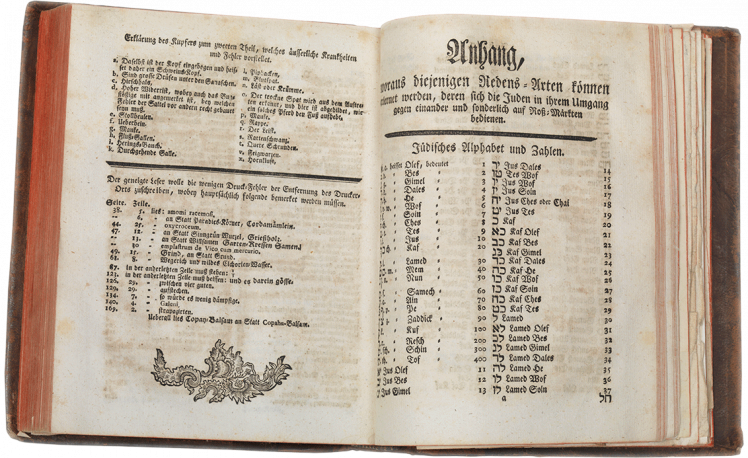 Erklärung des Kupfers zum zweyten Theil, welches äusserliche Krankheiten
und Fehler vorstellet.
a. Daselbst ist der Kopf eingebogen und heis-
set daher ein Schweins-Kopf.
b. Sind große Drüsen unter den Ganaschen.
c. Hirschhals.
d. Hoher Widerrist, wobey auch das Buge
stößige mit angemerket ist, bey welchen
Fehler der Sattel vor andern recht gebauet
seyn muß.
e. Stollbeulen.
f. Ueberbein.
g. Mauke.
h. Fluß-Gallen.
i. Herings-Bauch.
k. Durchgehende Galle.
l. Pipbacken.
m. Flußspat.
n. Hast oder Krämme.
o. Der trockne Spat wird aus dem Auftre-
ten erkennt, und hier ist abgebildet, wie
ein solches Pferd den Fuß aufhebt.
p. Mauke.
q. Rappe.
r. Der Leist.
s. Rattenschwanz.
t. Dürre Schrunden.
v. Feigwarzen.
x. Hornkluft.
Der geneigte Leser wolle die wenigen Druck-Fehler der Entfernung des Drucker-
Orts zuschreiben, wobey hauptsächlich folgende bemerket werden müssen.
Seite. Zeile.
38. 1. lies: amomi racemosi,
" " an Statt Paradies-Körner, Cardamömlein.
44. 25. " oxycroceum.
47. 12. " an Statt Singrün-Wurzel, Grießholz.
" 13. " an Statt Willsamen Garten-Kressen Samen.
" 30 " emplastrum de Vico cum mercurio.
49. 21. " Grind, an Statt Grund.
68. 8. " Wegerich und wildes Cichorien-Wasser.
87. in der anderletzten Zeile muß stehen:
123. in der anderletzten Zeile muß heissen: und es darein gösse.
126. 29. " zwischen vier guten.
129. 29. " aufstechen.
134. 7. " so würde es wenig dämpfige.
140. 4. " Galoni.
169. 2. " strapazirten.
Ueberall lies Copay-Balsam an Statt Copahu-Balsam.
Anhang,
woraus diejenigen Redens-Arten können
erlernet werden, deren sich die Juden in ihrem Umgang
gegen einander und sonderlich auf Roß-Märkten
bedienen.
Jüdisches Alphabet und Zahlen.
heissen Olef, bedeutet 1 יד Jus Dales 14
Bes 2 טו Tes Wof 15
Gimel 3 יו Jus Wof 16
Dales 4 יז Jus Soin 17
He 5 יח Jus Ches oder Chai 18
Wof 6 יט Jus Tes 19
Soin 7 כ Kaf 20
Ches 8 כא Kaf Olef 21
Tes 9 כב Kaf Bes 22
Jus 10 כג Kaf Gimel 23
Kaf 20 כד Kaf Dales 24
Lamed 30 כה Kaf He 25
Mem 40 כו Kaf Wof 26
Nun 50 כז Kaf Soin 27
Samech 60 כח Kaf Ches 28
Ain 70 כט Kaf Tes 29
Pe 80 ל Lamed 30
Zaddick 90 לא Lamed Olef 31
Kuf 100 לב Lamed Bes 32
Resch 200 לג Lamed Gimel 33
Schin 300 לד Lamed Dales 34
Tof 400 לה Lamed He 35
Jus Olef 11 לו Lamed Wof 36
Jus Bes 12 לז Lamed Soin 37
Jus Gimel 13
a